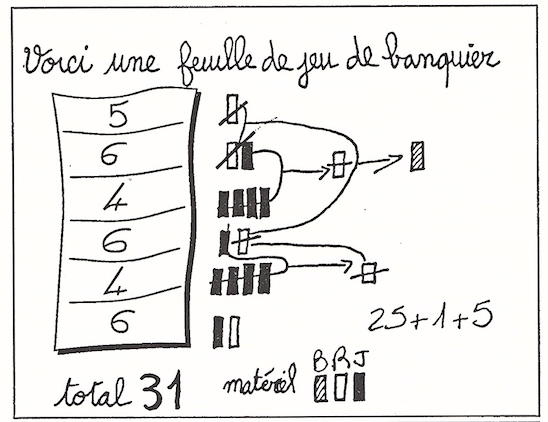 Voici une feuille de jeu de banquier
5
6
4
6
4
6
25+1+5
total 31
matériel B R J